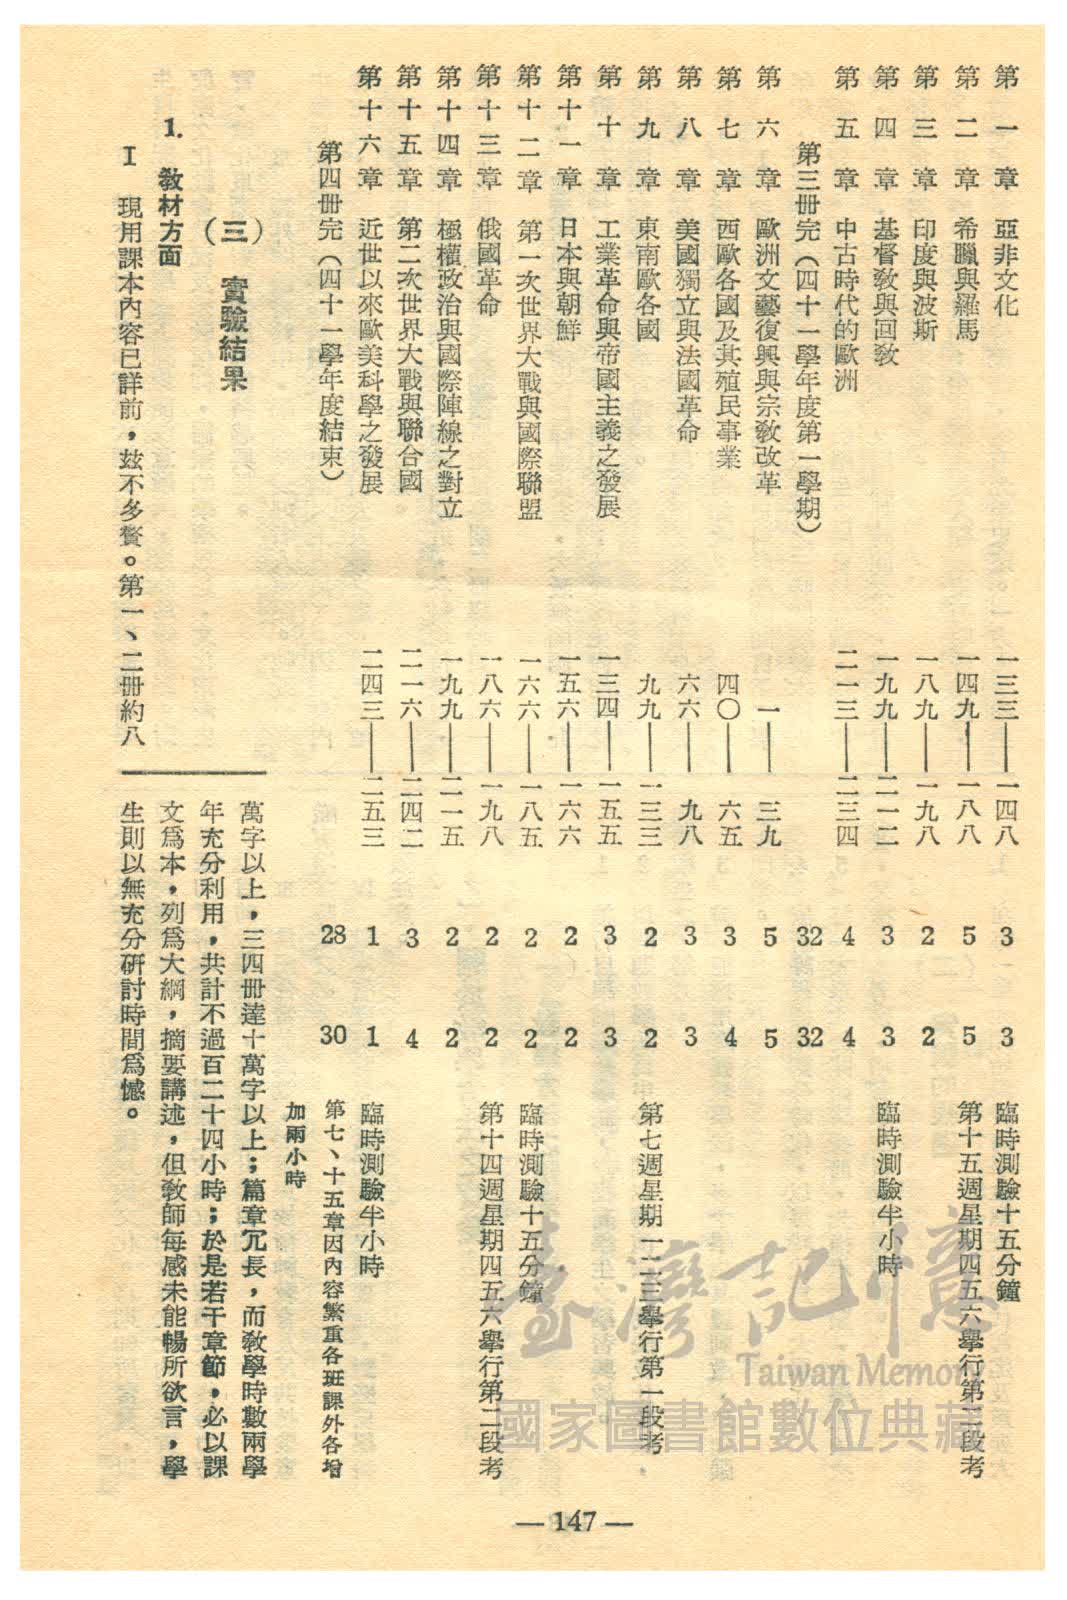 第一章 亞非文化 一三三——一四八 3 3 臨時測驗十五分鐘
第二章 希臘與羅馬 一四九——一八八 5 5 第十五週星期四五六舉行第三段考
第三章 印度與波斯 一八九——一九八 2 2
第四章 基督教與回教 一九九——二一二 3 3 臨時測驗半小時
第五章 中古時代的歐洲 二一三——二三四 4 4
第三冊完（四十一學年度第一學期） 32 32
第六章 歐洲文藝復興與宗教改革 一——三九 5 5
第七章 西歐各國及其殖民事業 四〇——六五 3 4
第八章 美國獨立與法國革命 六六——九八 3 3
第九章 東南歐各國 九九——一三三 2 2 第七週星期一二三舉行第一段考
第十章 工業革命與帝國主義之發展 一三四——一五五 3 3
第十一章 日本與朝鮮 一五六——一六六 2 2
第十二章 第一次世界大戰與國際聯盟 一六六——一八五 2 2 臨時測驗十五分鐘
第十三章 俄國革命 一八六——一九八 2 2 第十四週星期四五六舉行第二段考
第十四章 極權政治與國際陣線之對立 一九九——二一五 2 2
第十五章 第二次世界大戰與聯合國 二一六——二四二 3 4
第十六章 近世以來歐美科學之發展 二四三——二五三 1 1 臨時測驗半小時
第四冊完（四十一學年度結束） 28 30 第七、十五章因內容繁重各班課外各增
加兩小時
（三） 實驗結果
1. 教材方面
I 現用課本內容已詳前，茲不多贅。第一、二冊約八
萬字以上，三四冊達十萬字以上；篇章冗長，而教學時數兩學
年充分利用，共計不過百二十四小時；於是若干章節，必以課
文爲本，列爲大綱，摘要講述，但教師每感未能暢所欲言，學
生則以無充分研討時間爲憾。
— 147 —
臺灣記憶
Taiwan Memory
國家圖書館數位典藏